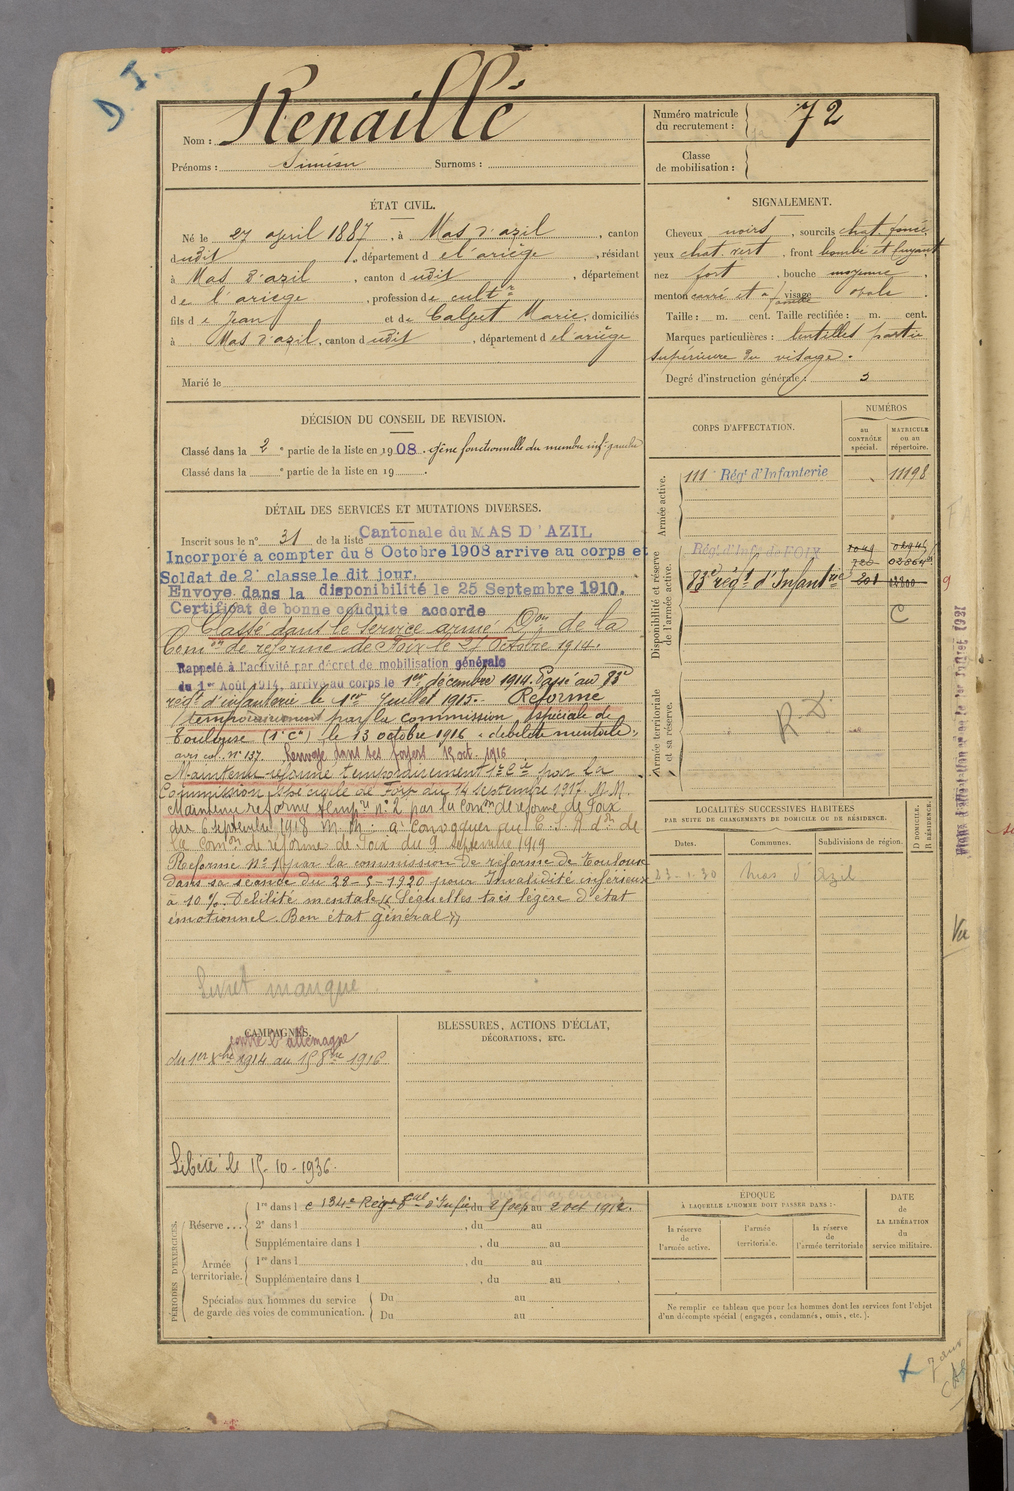 D I.
Nom : Renaillé
Prénoms : Siméon Surnoms :
Numéro matricule du recrutement : 72
Classe de mobilisation :
ÉTAT CIVIL.
Né le 27 april 1887, à Mas d'azil, canton
dudit, département de l'ariège, résidant
à Mas d'azil, canton dudit, département
de l'ariege, profession de cultr
fils de Jean et de Calzet Marie, domiciliés
à Mas d'azil, canton dudit, département de l'ariège
Marié le
SIGNALEMENT.
Cheveux noirs, sourcils chat. foncé,
yeux chat. vert, front bombé et fuyant
nez fort, bouche moyenne,
menton carré et à visage ovale.
Taille : m. cent. Taille rectifiée : m. cent.
Marques particulières : lentilles partie
supérieure du visage.
Degré d'instruction générale : 3
DÉCISION DU CONSEIL DE REVISION.
Classé dans la 2e partie de la liste en 1908. gêne fonctionnelle du membre inf. gauche
Classé dans la e partie de la liste en 19 .
DÉTAIL DES SERVICES ET MUTATIONS DIVERSES.
Inscrit sous le n° 31 de la liste Cantonale du MAS D'AZIL
Incorporé a compter du 8 Octobre 1908 arrive au corps et
Soldat de 2e classe le dit jour.
Envoye dans la disponibilité le 25 Septembre 1910.
Certificat de bonne conduite accorde
Classé dans le Service armé Don de la
Comon de reforme de Foix le 27 Octobre 1914.
Rappelé à l'activité par décret de mobilisation générale
du 1er Août 1914, arrive au corps le 1er décembre 1914. Passé au 83e
régt d'infanterie le 1er Juillet 1915. Reformé
temporairement par la commission spéciale de
Toulouse (1e Con) le 13 octobre 1916 « debilité mentale »
avis col. n° 137. Renvoyé dans ses foyers 15 oct. 1916
Maintenu reformé temporairement par la
Commission spéciale de Foix du 14 septembre 1917. M.M.
Maintenu reformé tempre n° 2 par la Comon de réforme de Foix
du 6 septembre 1918 M. M. : a Convoquer au C.S.R don de
la Comon de réforme de Foix du 9 septembre 1919
Reformé N° 1 par la commission de reforme de Toulouse
dans sa séance du 28-5-1920 pour Invalidité inférieure
à 10 %. Debilité mentale. Séquelles très légère d'état
émotionnel. Bon état général »
Livret manque
CORPS D'AFFECTATION.
NUMÉROS
au CONTRÔLE spécial.
MATRICULE ou au répertoire.
Armée active.
111e Régt d'Infanterie 11198
Disponibilité et réserve de l'armée active.
Régt d'Infie de FOIX
83e régt d'Infantrie
C
9
Armée territoriale et sa réserve.
R.D.
LOCALITÉS SUCCESSIVES HABITÉES
PAR SUITE DE CHANGEMENTS DE DOMICILE OU DE RÉSIDENCE.
Dates. Communes. Subdivisions de région.
D DOMICILE. R RÉSIDENCE.
23-1-30 Mas d'Azil
CAMPAGNES.
contre l'allemagne
du 1er Xbre 1914 au 15 8bre 1916
Libéré le 15-10-1936.
BLESSURES, ACTIONS D'ÉCLAT,
DÉCORATIONS, ETC.
PÉRIODES D'EXERCICES.
Réserve....
1re dans le 134e Régt d'Infie du 2 Sep au 2 oct 1912.
2e dans l , du au
Supplémentaire dans l , du au
Armée territoriale.
1re dans l , du au
Supplémentaire dans l , du au
Spéciales aux hommes du service de garde des voies de communication.
Du au
Du au
ÉPOQUE
À LAQUELLE L'HOMME DOIT PASSER DANS :
la réserve de l'armée active.
l'armée territoriale.
la réserve de l'armée territoriale
DATE de LA LIBÉRATION du service militaire.
Ne remplir ce tableau que pour les hommes dont les services font l'objet
d'un décompte spécial (engagés, condamnés, omis, etc.).
Vu